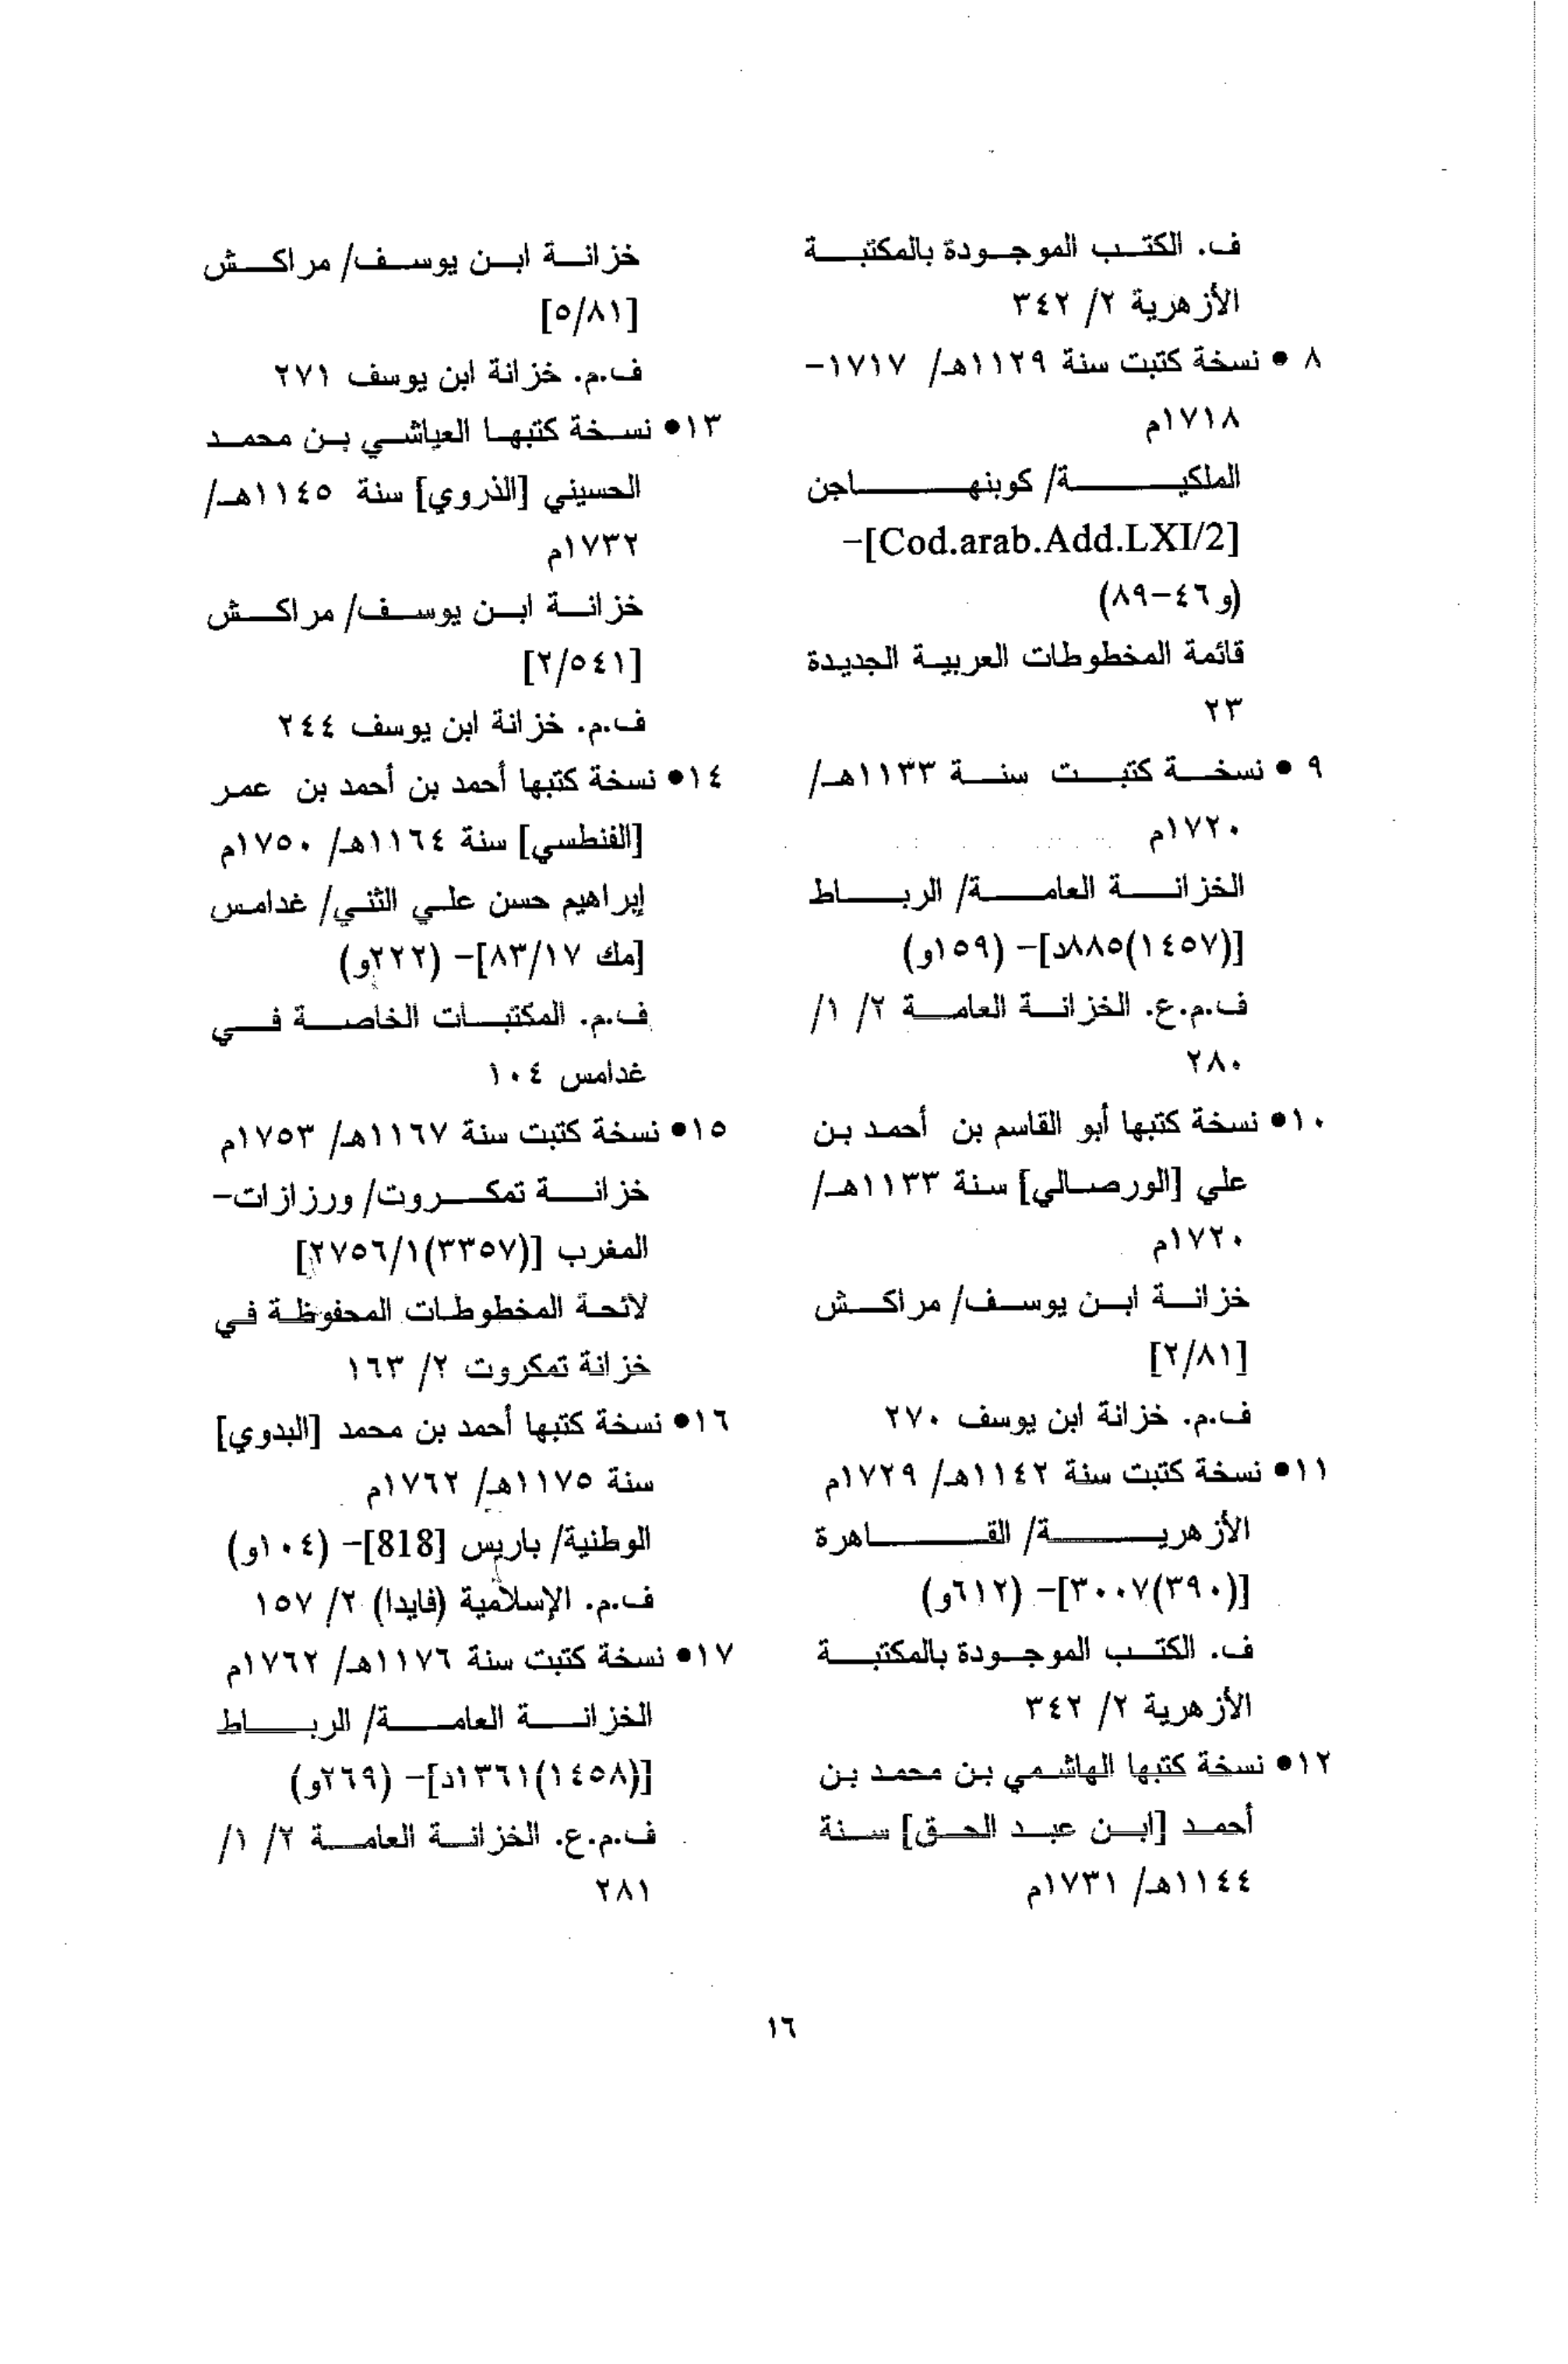 ف. الكتب الموجودة بالمكتبة
الأزهرية ٢/ ٣٤٢
٨ • نسخة كتبت سنة ١١٢٩هـ/ ١٧١٧-
١٧١٨م
الملكية/ كوبنهاجن
[Cod.arab.Add.LXI/2]-
(و٤٦-٨٩)
قائمة المخطوطات العربية الجديدة
٢٣
٩ • نسخة كتبت سنة ١١٣٣هـ/
١٧٢٠م
الخزانة العامة/ الرباط
[(١٤٥٧)٨٨٥د]- (١٥٩و)
ف.م.ع. الخزانة العامة ٢/ ١/
٢٨٠
١٠• نسخة كتبها أبو القاسم بن أحمد بن
علي [الورصالي] سنة ١١٣٣هـ/
١٧٢٠م
خزانة ابن يوسف/ مراكش
[٢/٨١]
ف.م. خزانة ابن يوسف ٢٧٠
١١• نسخة كتبت سنة ١١٤٢هـ/ ١٧٢٩م
الأزهرية/ القاهرة
[(٣٩٠)٣٠٠٧]- (٦١٢و)
ف. الكتب الموجودة بالمكتبة
الأزهرية ٢/ ٣٤٢
١٢• نسخة كتبها الهاشمي بن محمد بن
أحمد [ابن عبد الحق] سنة
١١٤٤هـ/ ١٧٣١م
خزانة ابن يوسف/ مراكش
[٥/٨١]
ف.م. خزانة ابن يوسف ٢٧١
١٣• نسخة كتبها العياشي بن محمد
الحسيني [الذروي] سنة ١١٤٥هـ/
١٧٣٢م
خزانة ابن يوسف/ مراكش
[٢/٥٤١]
ف.م. خزانة ابن يوسف ٢٤٤
١٤• نسخة كتبها أحمد بن أحمد بن عمر
[الفنطسي] سنة ١١٦٤هـ/ ١٧٥٠م
إبراهيم حسن علي الثني/ غدامس
[مك ٨٣/١٧]- (٢٢٢و)
ف.م. المكتبات الخاصة في
غدامس ١٠٤
١٥• نسخة كتبت سنة ١١٦٧هـ/ ١٧٥٣م
خزانة تمكروت/ ورزازات-
المغرب [(٣٣٥٧)٢٧٥٦/١]
لائحة المخطوطات المحفوظة في
خزانة تمكروت ٢/ ١٦٣
١٦• نسخة كتبها أحمد بن محمد [البدوي]
سنة ١١٧٥هـ/ ١٧٦٢م
الوطنية/ باريس [818]- (١٠٤و)
ف.م. الإسلامية (فايدا) ٢/ ١٥٧
١٧• نسخة كتبت سنة ١١٧٦هـ/ ١٧٦٢م
الخزانة العامة/ الرباط
[(١٤٥٨)١٣٦١د]- (٢٦٩و)
ف.م.ع. الخزانة العامة ٢/ ١/
٢٨١
١٦